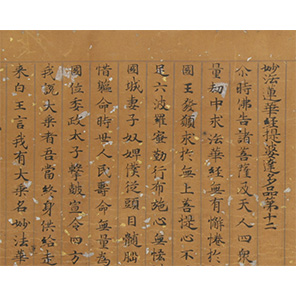 妙法蓮華經提婆達多品第十二
尒時佛告諸菩薩及天人四衆
量劫中求法華經無有懈惓於
國王發願求於無上菩提心不
足六波羅蜜勤行布施心無悋
國城妻子奴婢僕從頭目髓腦
惜軀命時世人民壽命無量為
國位委政太子擊皷宣令四方
我說大乘者吾當終身供給走
來白王言我有大乘名妙法華